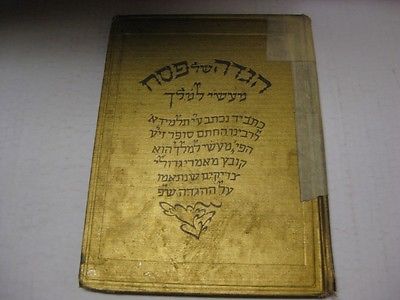 הגדה של פסח
מעשי למלך
כתב יד נכתב ע״י תלמיד א׳
לרבינו החתם סופר זי״ע
הפי׳ מעשי למלך הוא
קובץ מאמרי גדולי
צדיקים שנתאמו
על ההגדה ש״פ